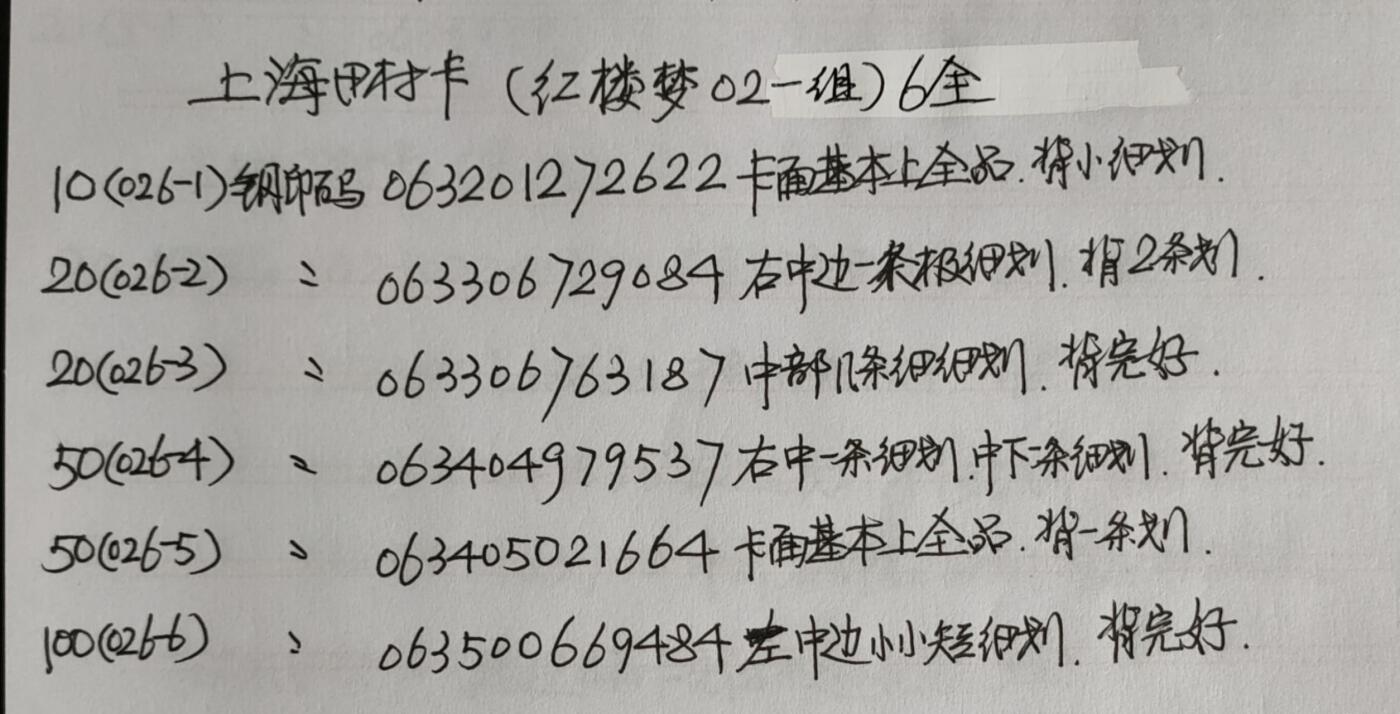 上海田村卡（红楼梦02一组）6全
10(026-1)钢印码 063201272622 卡面基本上全品.背小细划.
20(026-2) 〃 063306729084 右中边一条极细划.背2条划.
20(026-3) 〃 063306763187 中部几条细细划.背完好.
50(026-4) 〃 063404979537 右中一条细划.中下一条细划.背完好.
50(026-5) 〃 063405021664 卡面基本上全品.背一条划.
100(026-6) 〃 063500669484 左中边小小短细划.背完好.